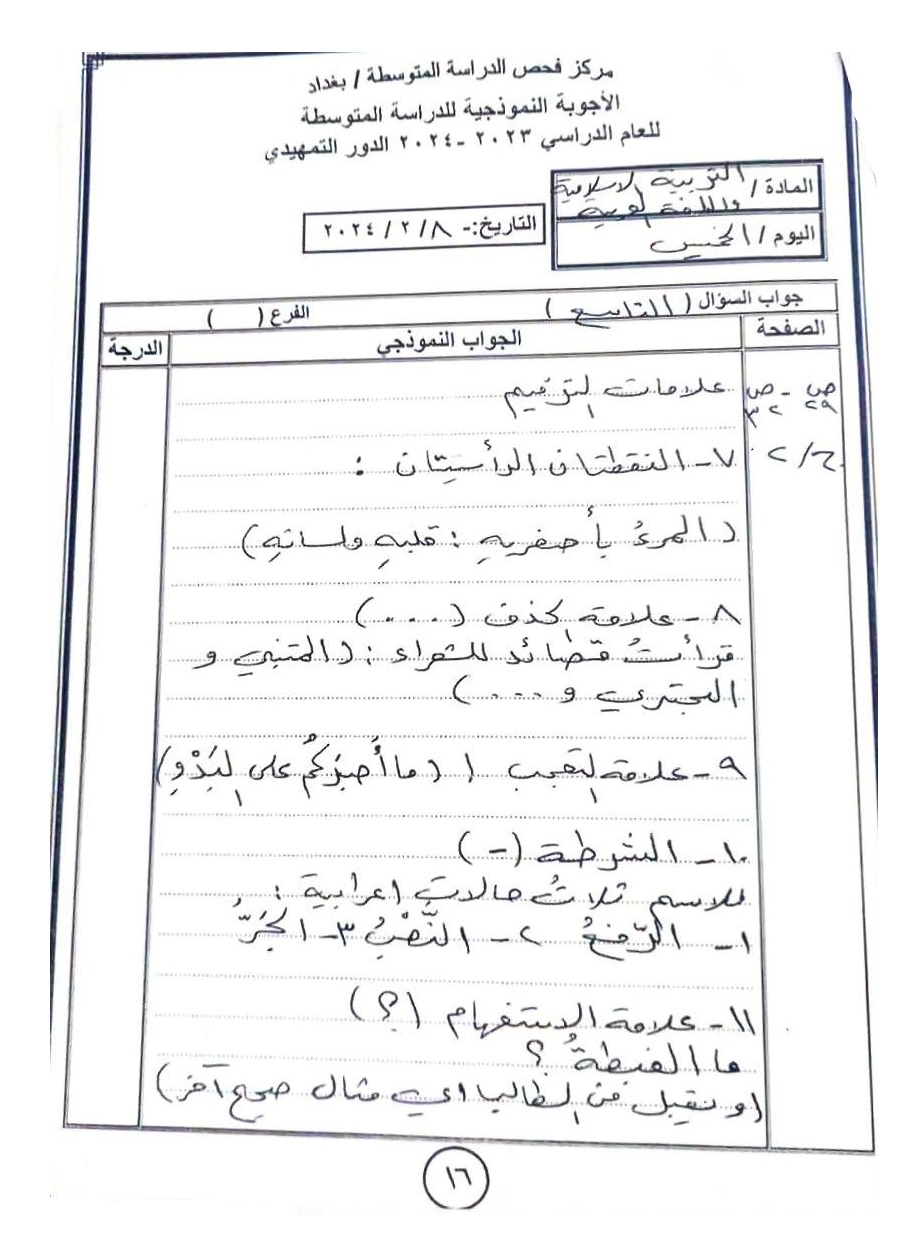 مركز فحص الدراسة المتوسطة / بغداد
الأجوبة النموذجية للدراسة المتوسطة
للعام الدراسي ٢٠٢٣ - ٢٠٢٤ الدور التمهيدي
المادة / التربية الاسلامية
واللغة العربية
اليوم / الخميس
التاريخ:- ٨ / ٢ / ٢٠٢٤
جواب السؤال ( التاسع ) الفرع ( )
الصفحة الجواب النموذجي الدرجة
ص - ص علامات الترقيم
٢٩ ٣٢
ج/٢ ٧- النقطتان الرأسيتان :
( المرءُ بأصغريهِ : قلبهِ ولسانهِ )
٨- علامة الحذف ( . . . . )
قرأتُ قصائد للشعراء : ( المتنبي و
البحتري و . . . . )
٩- علامة التعجب ! ( ما أصبرَكُم على البَدْوِ )
!
١٠- الشرطة ( - )
للاسم ثلاثُ حالاتٍ اعرابية :
١- الرّفعُ ٢- النَّصْبُ ٣- الجَرُّ
١١- علامة الاستفهام ( ؟ )
ما الغبطةُ ؟
( او نقبل من الطالب اي مثال صحيح آخر )
١٦